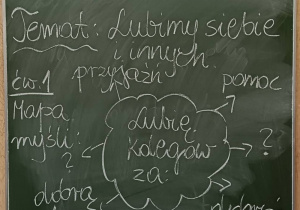 Temat: Lubimy siebie
i innych.
przyjaźń
pomoc
ćw.1
Mapa
myśli:
Lubię
kolegów
za:
?
?